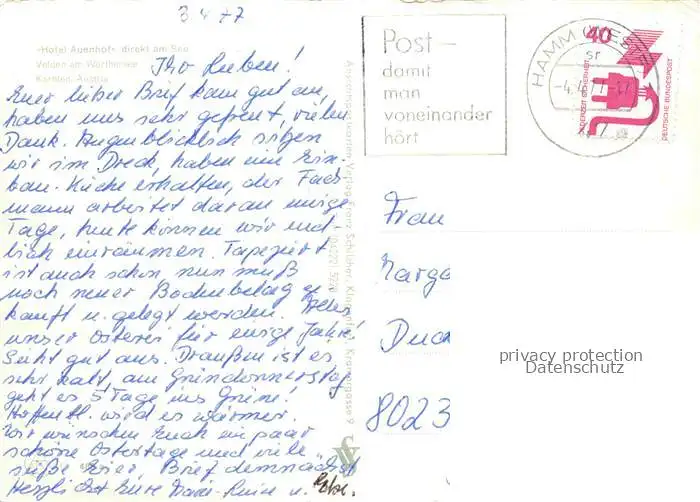 3 4 77
«Hotel Auenhof» direkt am See
Velden am Wörthersee
Kärnten-Austria
Ihr Lieben!
Euer lieber Brief kam gut an,
haben uns sehr gefreut, vielen
Dank. Augenblicklich sitzen
wir im Dreck, haben eine Ein-
bau-Küche erhalten, der Fach
mann arbeitet daran einige
Tage, heute können wir end-
lich einräumen. Tapeziert
ist auch schon, nun muß
noch neuer Bodenbelag ge
kauft u. gelegt werden. Alles
unser Osterei für einige Jahre!
Seht gut aus. Draußen ist es
sehr kalt, am Gründonnerstag
geht es 5 Tage ins Grüne!
Hoffentl. wird es wärmer.
Wir wünschen Euch ein paar
schöne Ostertage und viele
süße Eier, Brief demnächst
Herzlichst Eure Marie-Luise u.
Franz Schilcher, Klagenfurt
Post–
damit
man
voneinander
hört
HAMM (WESTF)
40
JEDERZEIT SICHERHEIT
DEUTSCHE BUNDESPOST
Frau
Marga
8023
privacy protection
Datenschutz